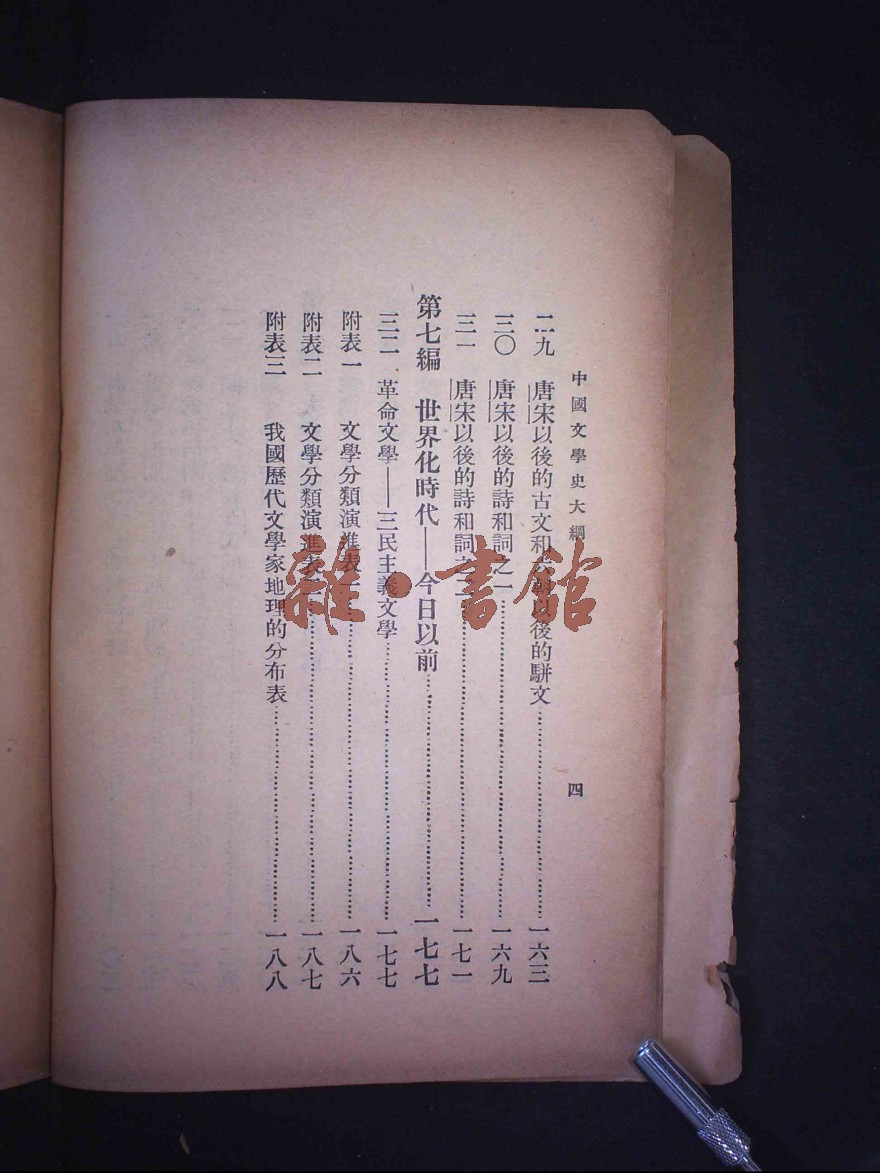 中國文學史大綱
四
二九 唐宋以後的古文和六朝以後的駢文⋯⋯一六三
三〇 唐宋以後的詩和詞之一⋯⋯一六九
三一 唐宋以後的詩和詞之二⋯⋯一七一
第七編 世界化時代——今日以前⋯⋯一七七
三二 革命文學——三民主義文學⋯⋯一七七
附表一 文學分類演進表一⋯⋯一八六
附表二 文學分類演進表二⋯⋯一八七
附表三 我國歷代文學家地理的分布表⋯⋯一八八
雜·書館